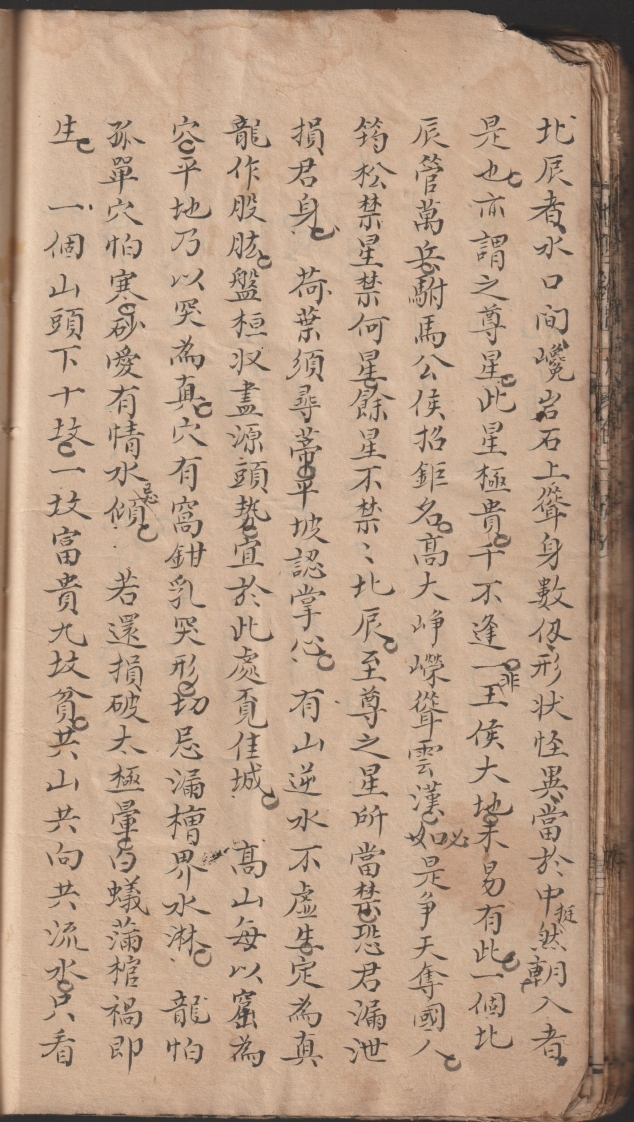 北辰者水口间巉岩石上聳身數仭形状怪異當於中挺然朝入者
是也亦謂之尊星此星極貴千不逢一非王侯大地未易有此一個北
辰管萬兵駙馬公侯招鉅名高大峥嶸聳雲漢必如是争天奪國人
筠松禁星禁何星餘星不禁〻北辰至尊之星所當禁恐君漏泄
損君身 荷葉須尋蒂平坡認掌心 有山逆水不虛生定為真
龍作股肱盤桓収盡源頭勢宜於此處覓佳城 高山每以窩為
容平地乃以突為真穴有窩鉗乳突形切忌漏檐界水淋 龍怕
孤單穴怕寒砂愛有情水忌傾 若還損破太極暈白蟻蒲棺禍即
生 一個山頭下十坟一坟富貴九坟貧共山共向共流水只看